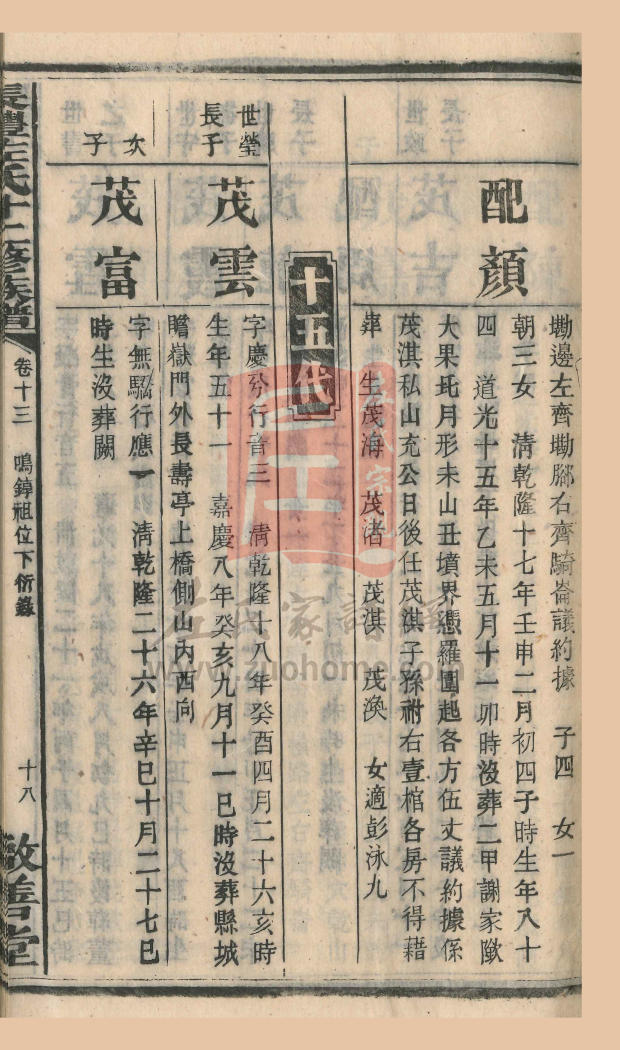 墈邊左齊墈腳右齊騎崙議約據 子四 女一
配顏
朝三女 清乾隆十七年壬申二月初四子時生年八十
四 道光十五年乙未五月十一卯時沒葬二甲謝家
大果坵月形未山丑墳界憑羅圍起各方伍丈議約據係
茂淇私山充公日後任茂淇子孫祔右壹棺各房不得藉
葬 生茂海 茂渚 茂淇 茂渙 女適彭泳九
十五代
世瑩長子
茂雲
字慶 行音三 清乾隆十八年癸酉四月二十六亥時
生年五十一 嘉慶八年癸亥九月十一巳時沒葬縣城
瞻嶽門外長壽亭上橋側山內西向
次子
茂富
字無 行應一 清乾隆二十六年辛巳十月二十七巳
時生沒葬闕
長豐左氏十二修族譜 卷十三 鳴鐸祖位下衍錄 十八 敬善堂
左氏家譜
www.zuohome.com